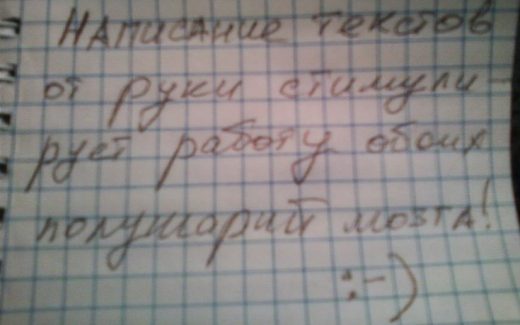 Написание текстов
от руки стимули-
рует работу обоих
полушарий мозга!
:-)